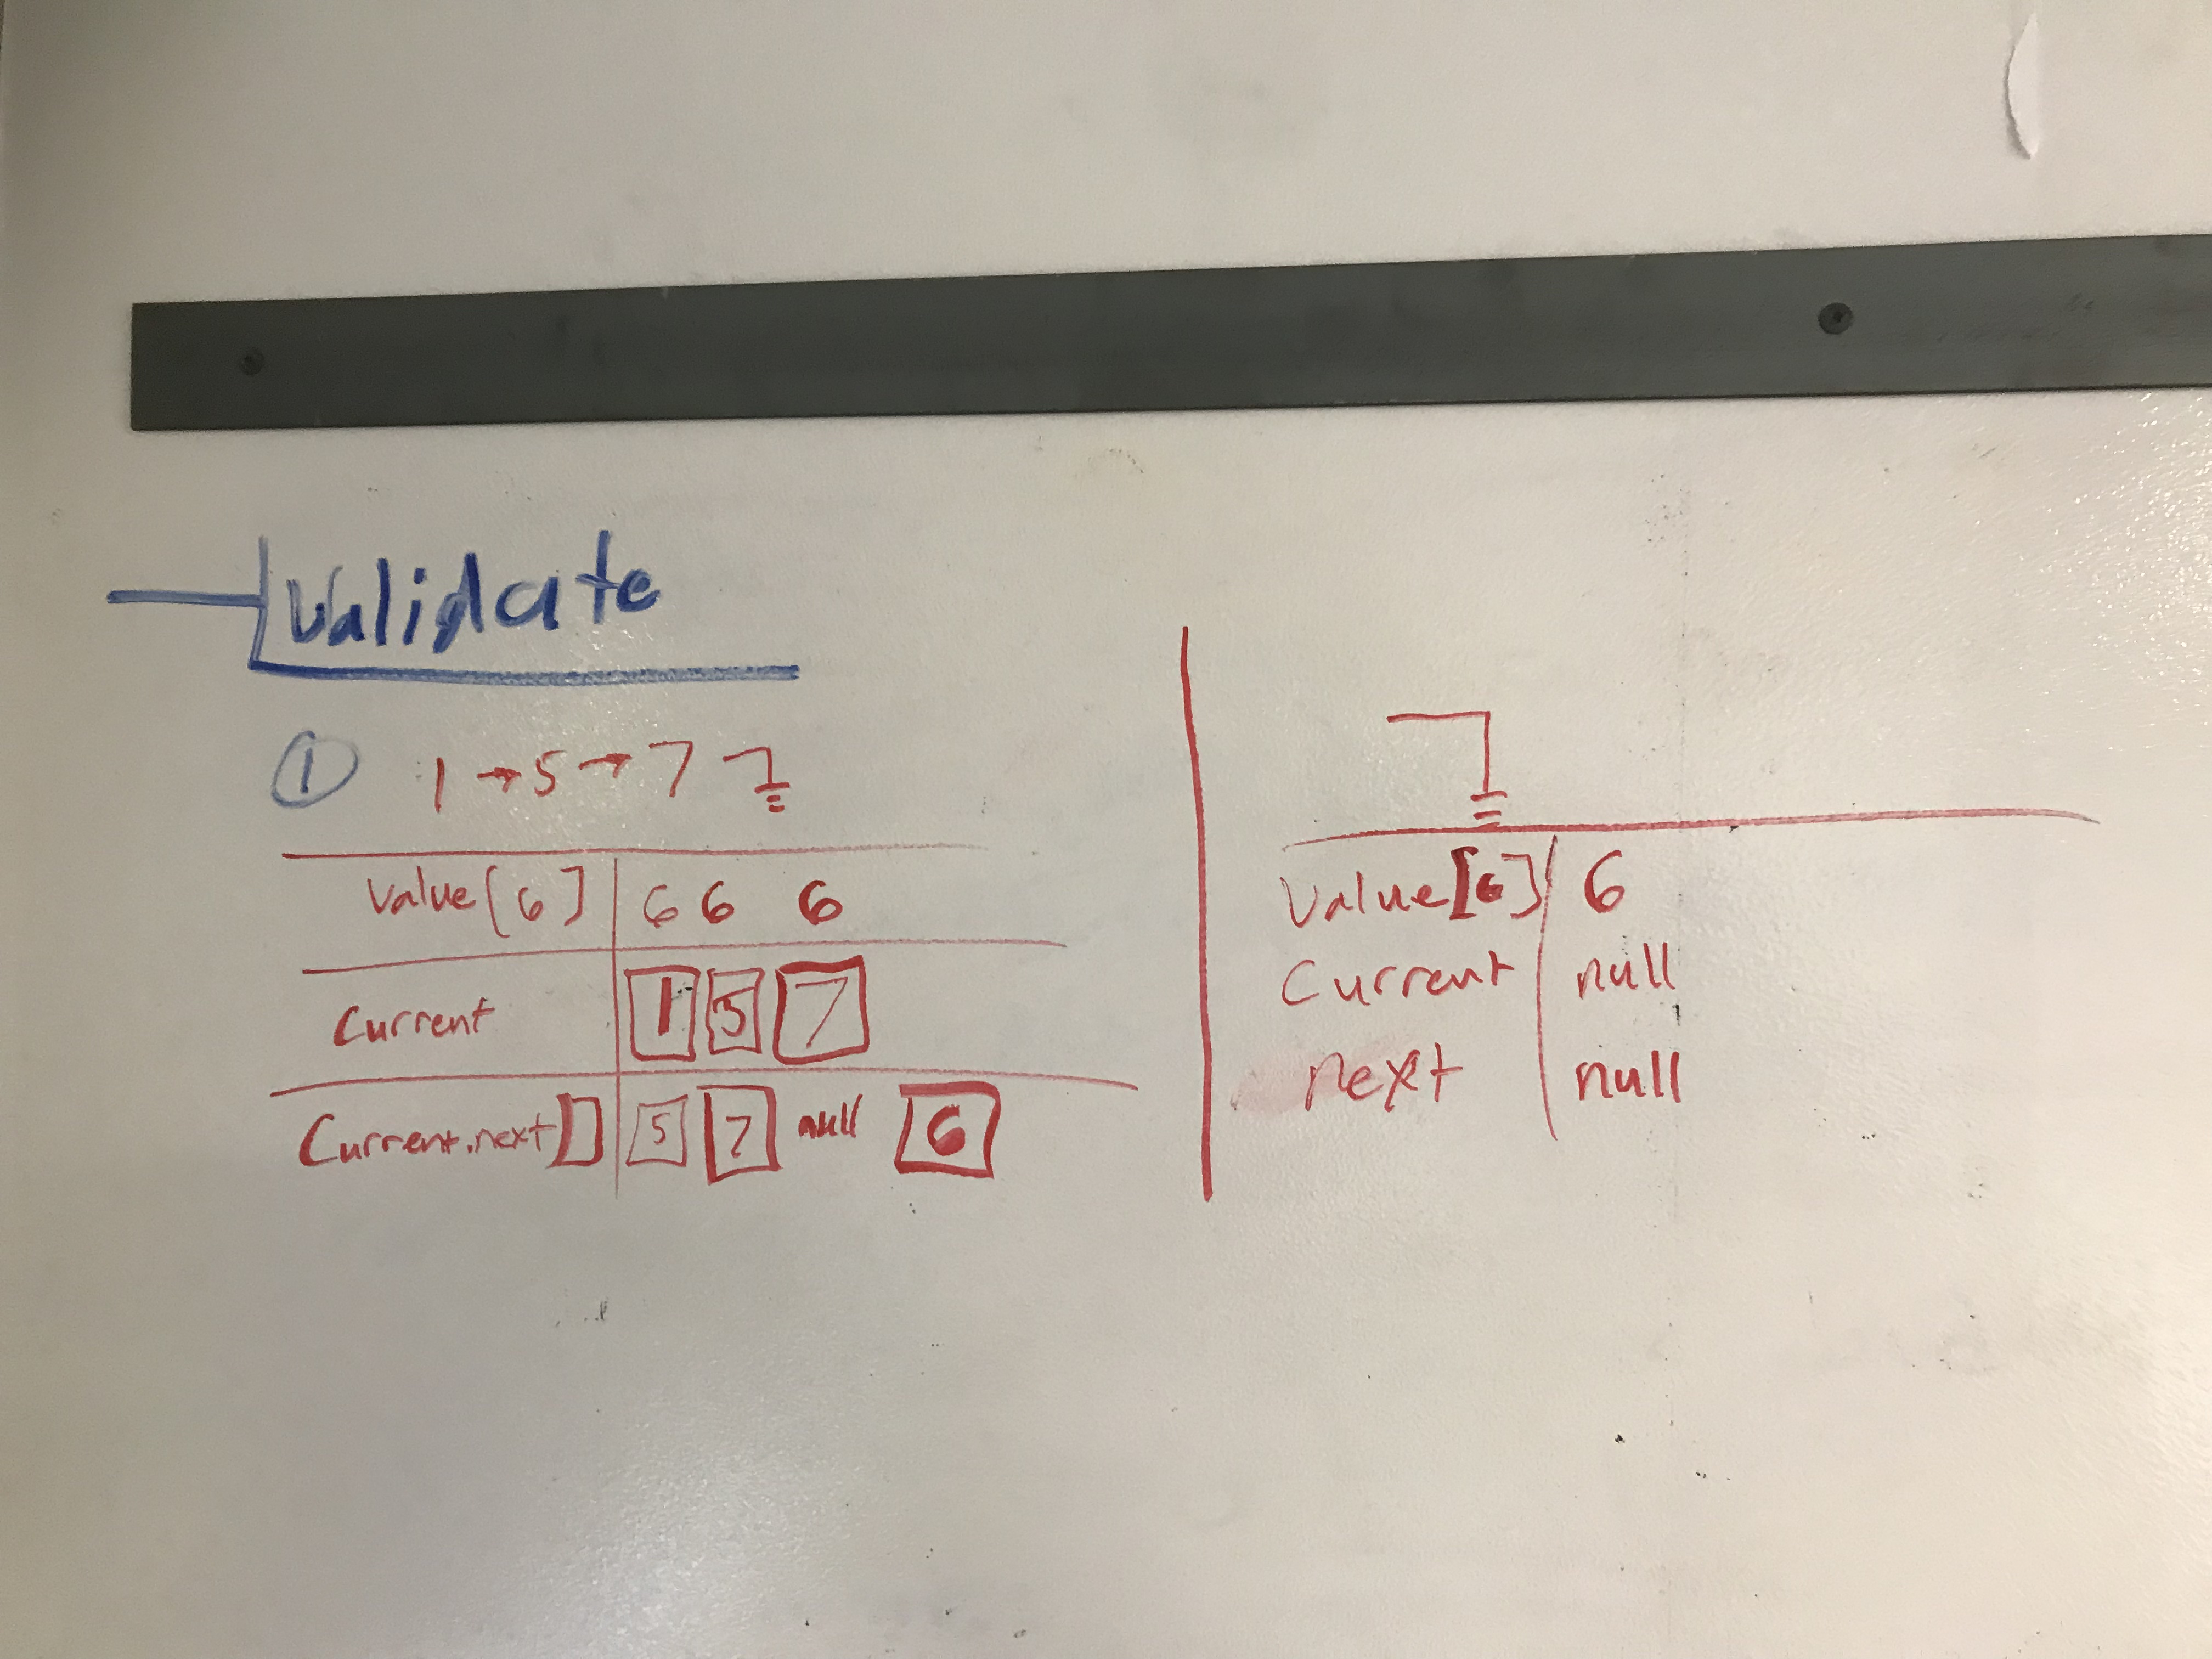 Validate
① 1 → 5 → 7
Value[6] 6 6 6
Current 1 5 7
Current.next[] 5 7 null 6
Value[6] 6
Current null
next null